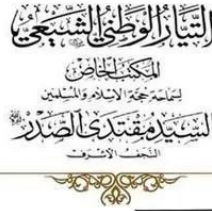 التيار الوطني الشيعي
المكتب الخاص
لسماحة حجة الإسلام والمسلمين
السيد مقتدى الصدر
النجف الأشرف